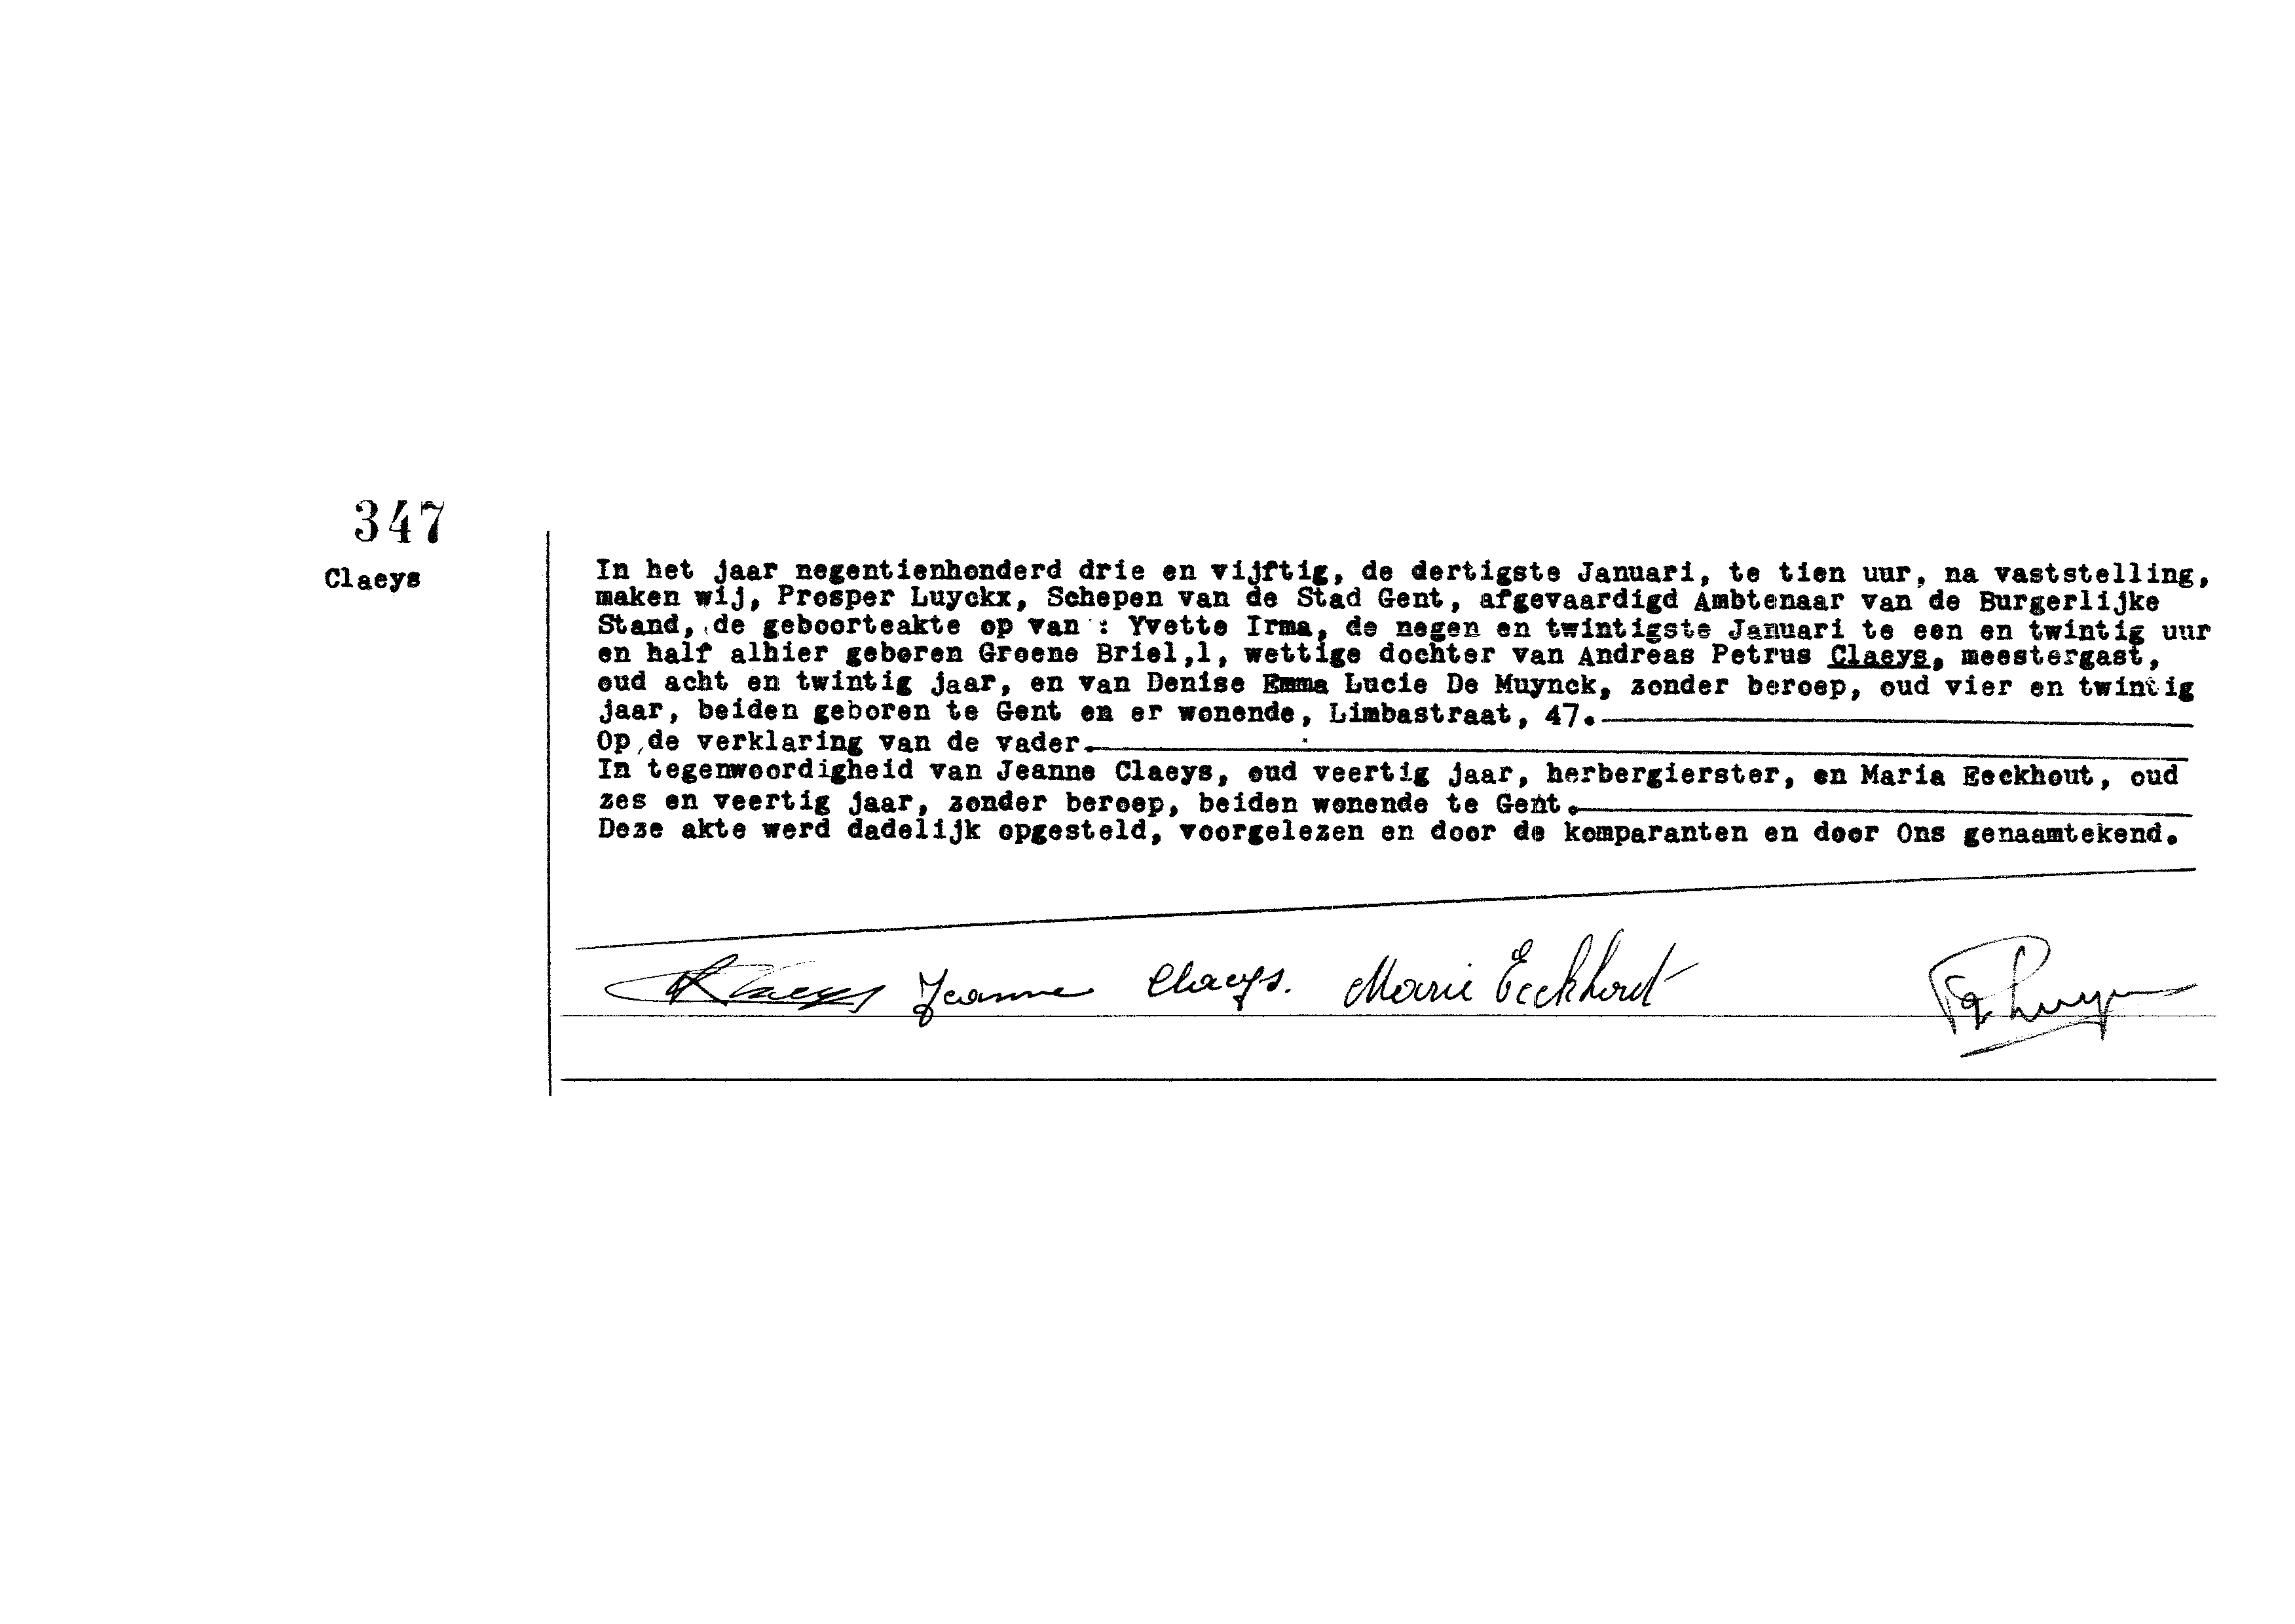 347
Claeys
In het jaar negentienhonderd drie en vijftig, de dertigste Januari, te tien uur, na vaststelling,
maken wij, Prosper Luyckx, Schepen van de Stad Gent, afgevaardigd Ambtenaar van de Burgerlijke
Stand, de geboorteakte op van : Yvette Irma, de negen en twintigste Januari te een en twintig uur
en half alhier geboren Groene Briel,1, wettige dochter van Andreas Petrus Claeys, meestergast,
oud acht en twintig jaar, en van Denise Emma Lucie De Muynck, zonder beroep, oud vier en twintig
jaar, beiden geboren te Gent en er wonende, Limbastraat, 47.
Op de verklaring van de vader.
In tegenwoordigheid van Jeanne Claeys, oud veertig jaar, herbergierster, en Maria Eeckhout, oud
zes en veertig jaar, zonder beroep, beiden wonende te Gent.
Deze akte werd dadelijk opgesteld, voorgelezen en door de komparanten en door Ons genaamtekend.
Claeys Jeanne Claeys. Marie Eeckhout